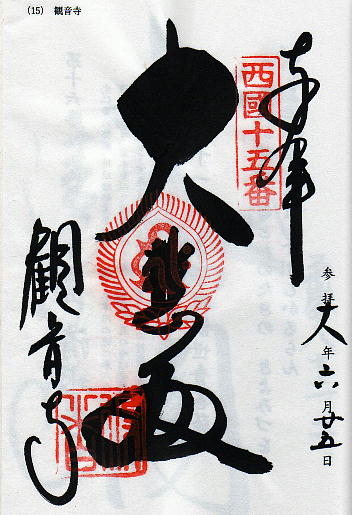 (15) 観音寺
奉拝
西國十五番
大悲殿
観音寺
参拝 六年 六月 廿五日